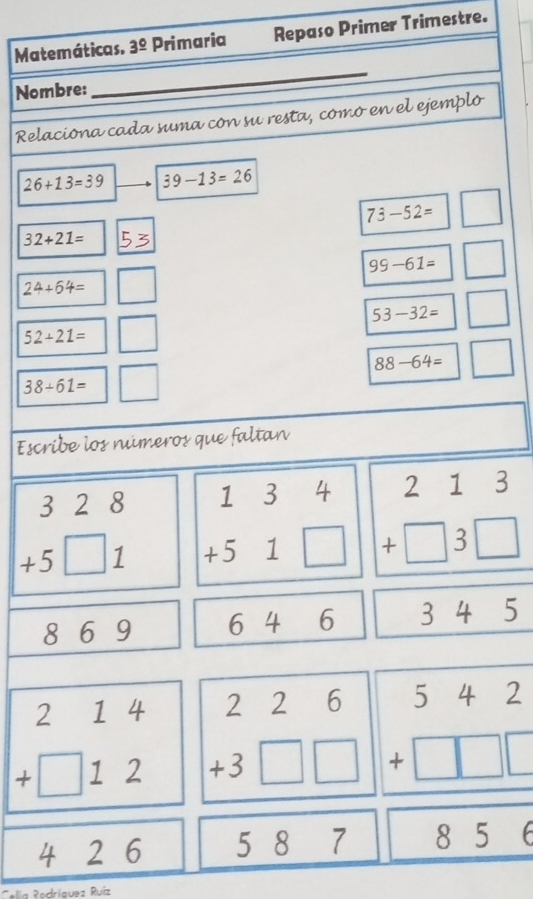 Matemáticas. 3º Primaria Repaso Primer Trimestre.
Nombre:
Relaciona cada suma con su resta, como en el ejemplo
26+13=39 39-13= 26
73-52=
32+21= 53
99-61=
24+64=
53-32=
52+21=
88-64=
38+61=
Escribe los números que faltan
3 2 8 1 3 4 2 1 3
+5 1 +5 1 + 3
8 6 9 6 4 6 3 4 5
2 1 4 2 2 6 5 4 2
+ 1 2 +3 +
4 2 6 5 8 7 8 5 6
Celia Rodríguez Ruiz